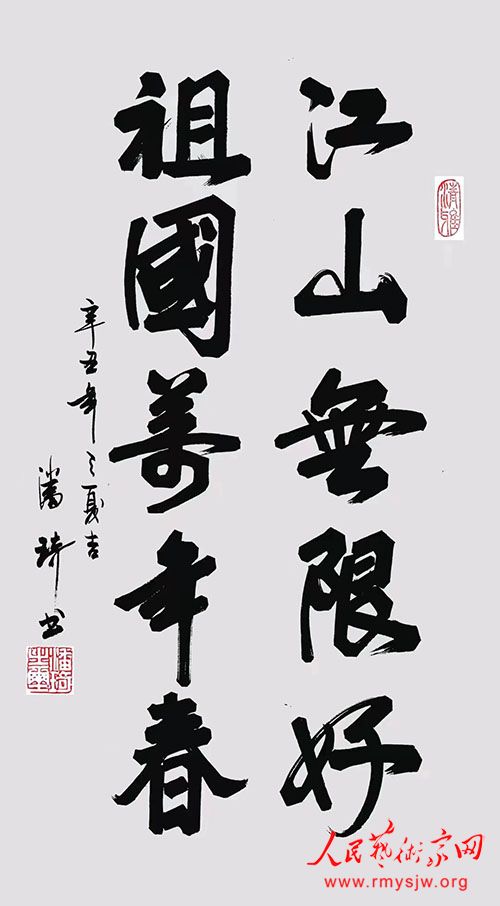 江山無限好
祖國萬年春
辛丑年之夏吉
潘琦书
人民藝術家网
www.rmysjw.org